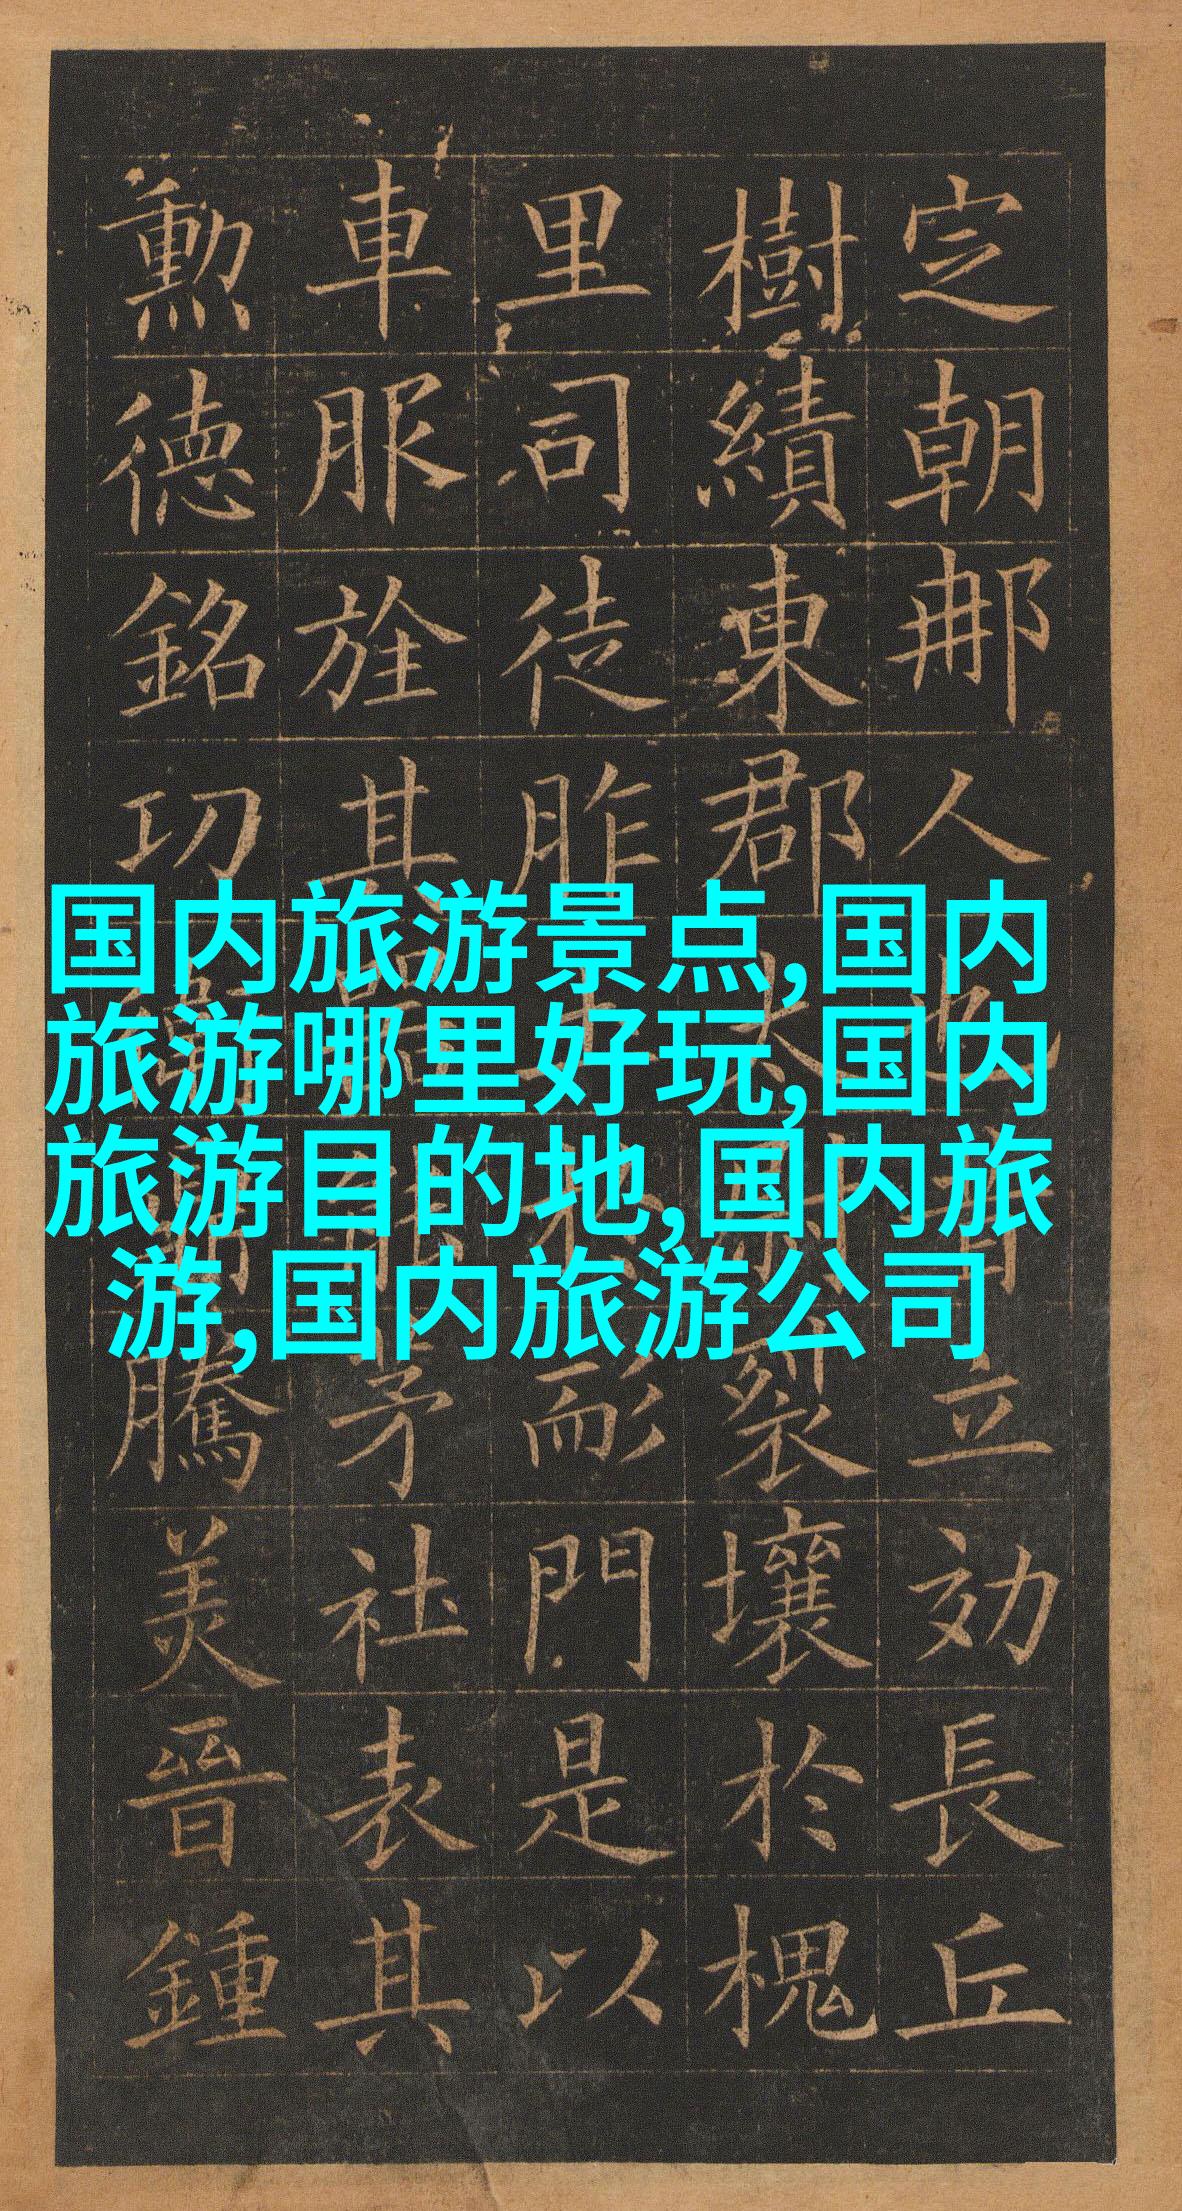 定朝那人也昔立効長丘
樹績東郡太尉裂壤於槐
里司徒胙土於耏門是以
車服旌其器能茅社表其
勲德銘功衛鼎騰美晉鍾
国内旅游景点,国内
旅游哪里好玩,国内
旅游目的地,国内旅
游,国内旅游公司